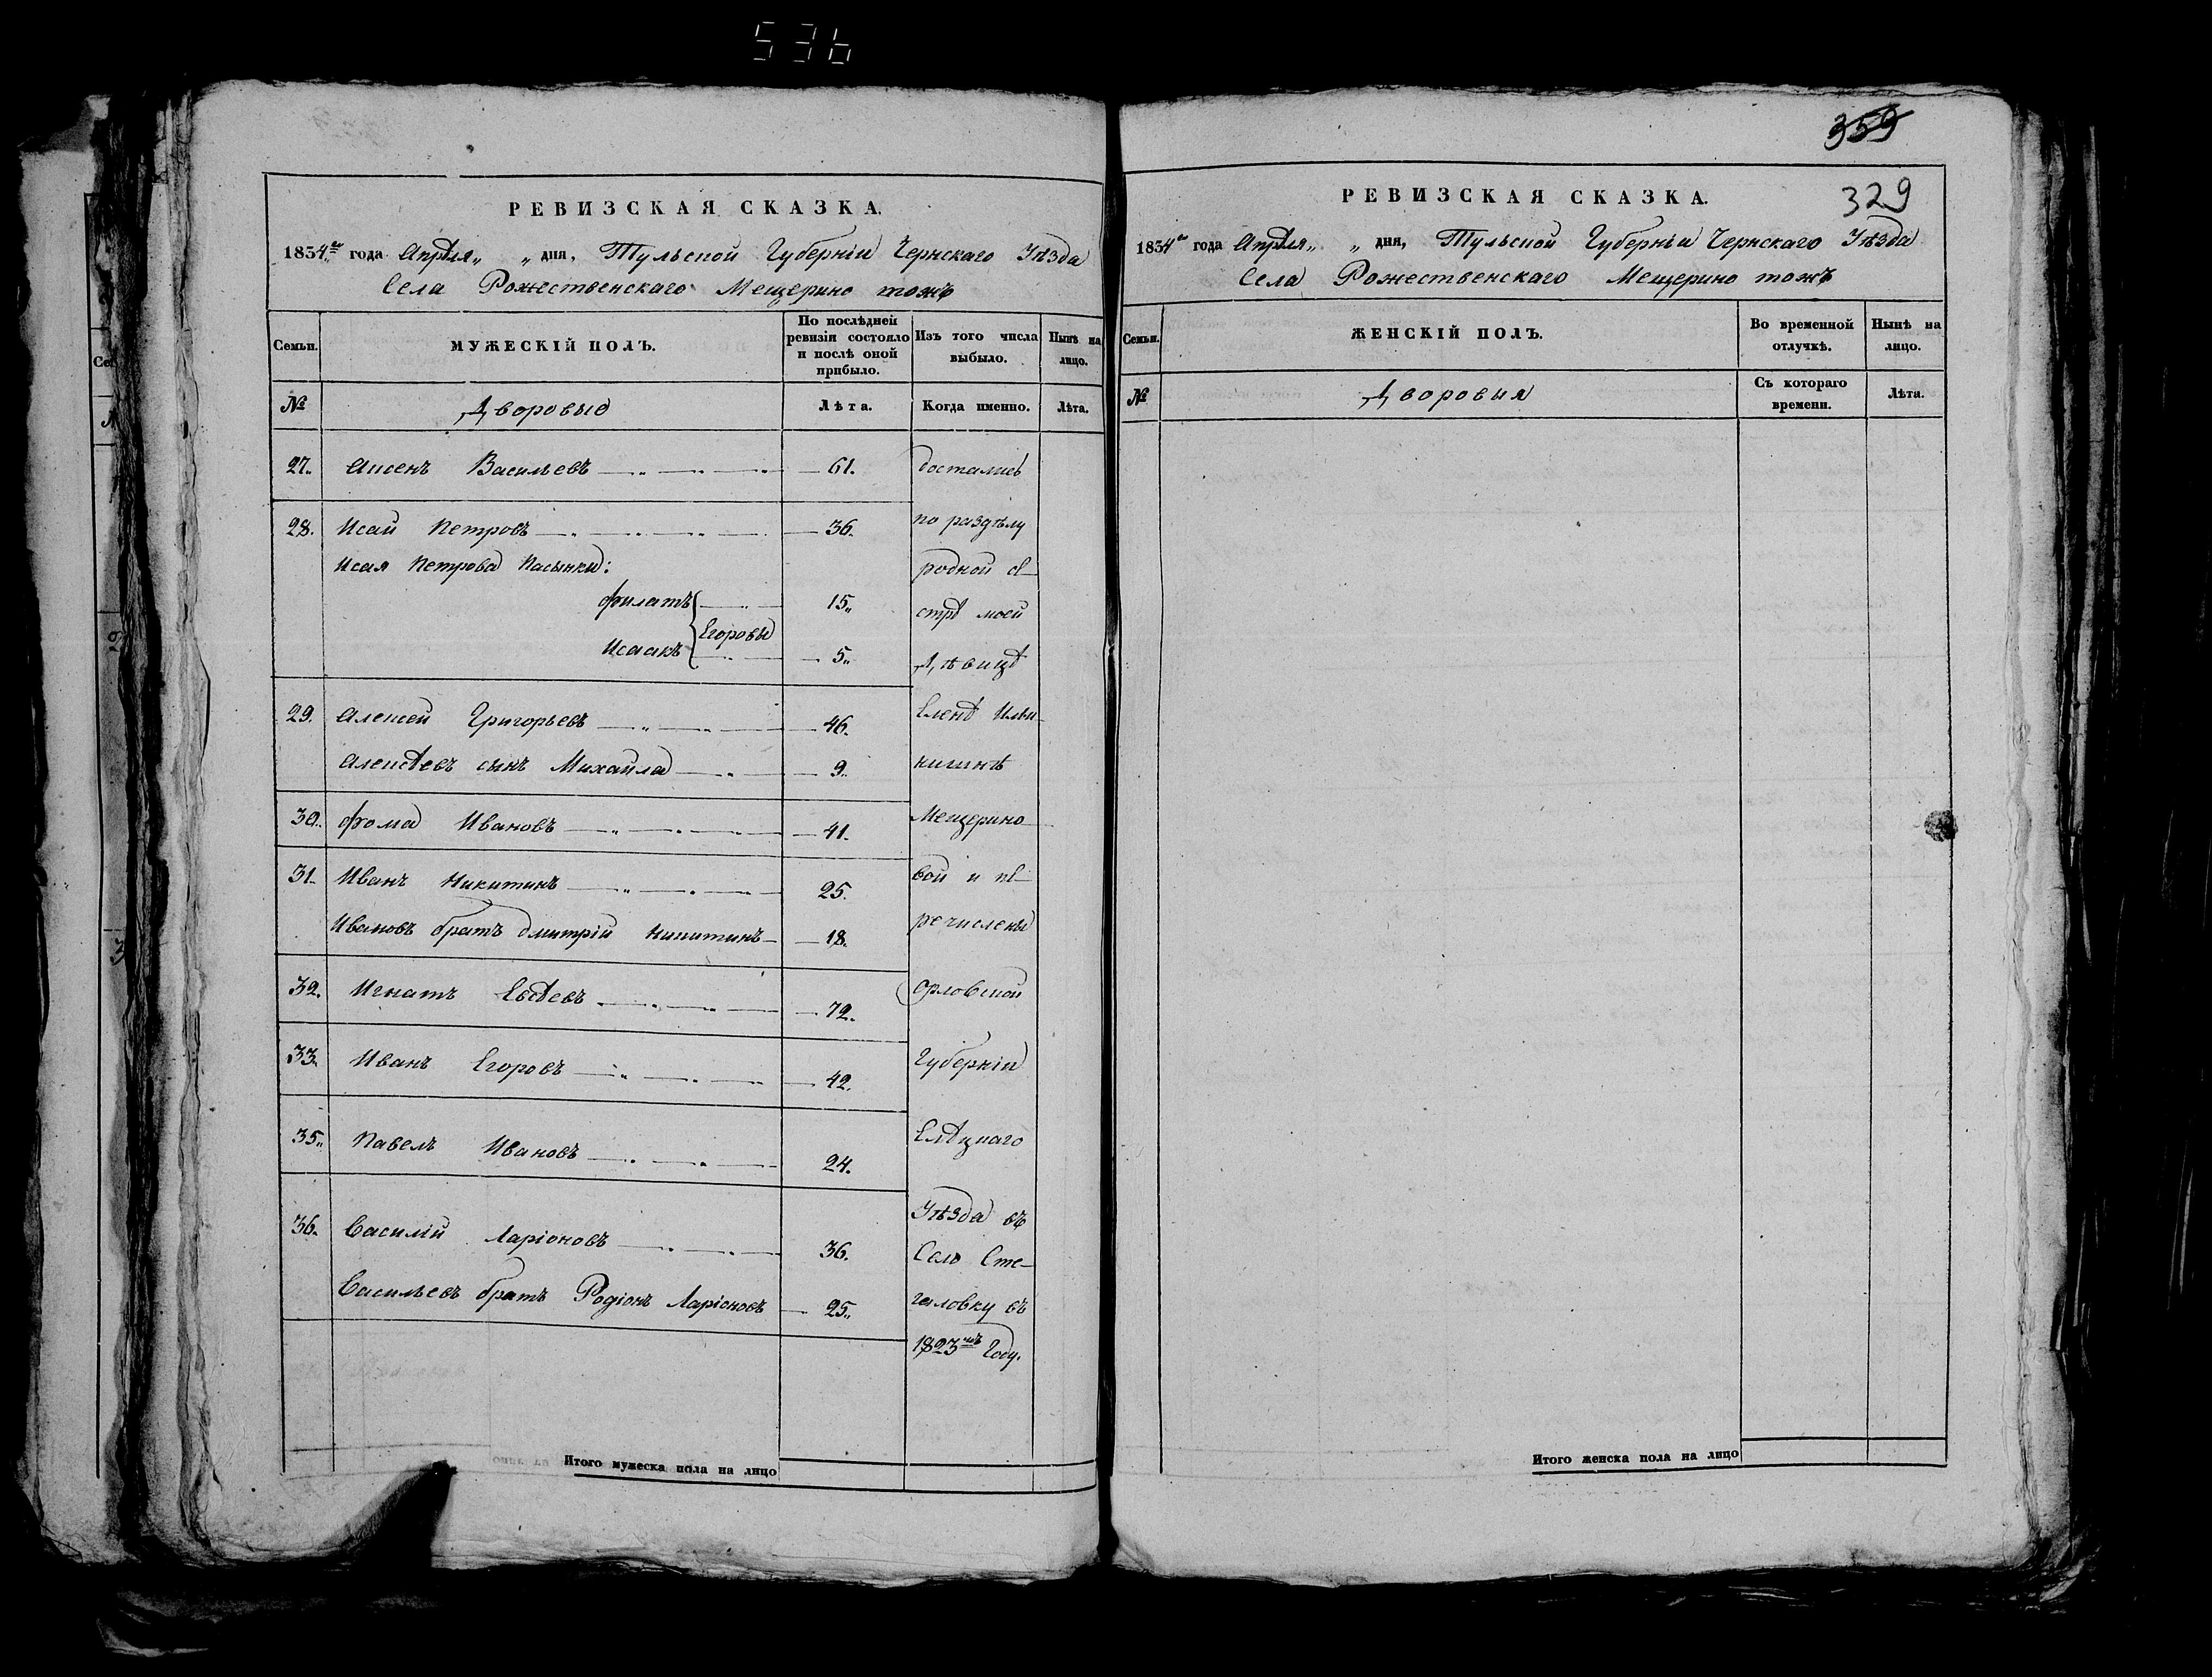 536
РЕВИЗСКАЯ СКАЗКА.
1834го года Апреля „ „ дня, Тульской Губерніи Чернскаго Уѣзда
Села Рожественскаго Мещерино тожъ
Семьи.
МУЖЕСКІЙ ПОЛЪ.
По послѣдней ревизіи состояло и послѣ оной прибыло.
Изъ того числа выбыло.
Нынѣ на лицо.
№
Дворовые
Лѣта.
Когда именно.
Лѣта.
27. Аксенъ Васильевъ 61. достались
28. Исай Петровъ 36. по раздѣлу
Исая Петрова Пасынки: родной се-
Филатъ 15. стре моей
Егоровы
Исаакъ 5. Дѣвице
29. Алексей Григорьевъ 46. Елене Ильи-
Алексеевъ сынъ Михайла 9. нишнѣ
30. Фома Ивановъ 41. Мещерино-
31. Иванъ Никитинъ 25. вой и пе-
Ивановъ братъ Дмитрій Никитинъ 18. речислены
32. Игнатъ Евсеевъ 72. Орловской
33. Иванъ Егоровъ 42. Губерніи
35. Павелъ Ивановъ 24. Елецкаго
Уѣзда въ
36. Василій Ларіоновъ 36. Село Сте-
Васильевъ братъ Родіонъ Ларіоновъ 25. галовку въ
1823мъ Году.
Итого мужеска пола на лицо
359
329
РЕВИЗСКАЯ СКАЗКА.
1834го года Апреля „ „ дня, Тульской Губерніи Чернскаго Уѣзда
Села Рожественскаго Мещерино тожъ
Семьи.
ЖЕНСКІЙ ПОЛЪ.
Во временной отлучкѣ.
Нынѣ на лицо.
№
Дворовыя
Съ котораго времени.
Лѣта.
Итого женска пола на лицо